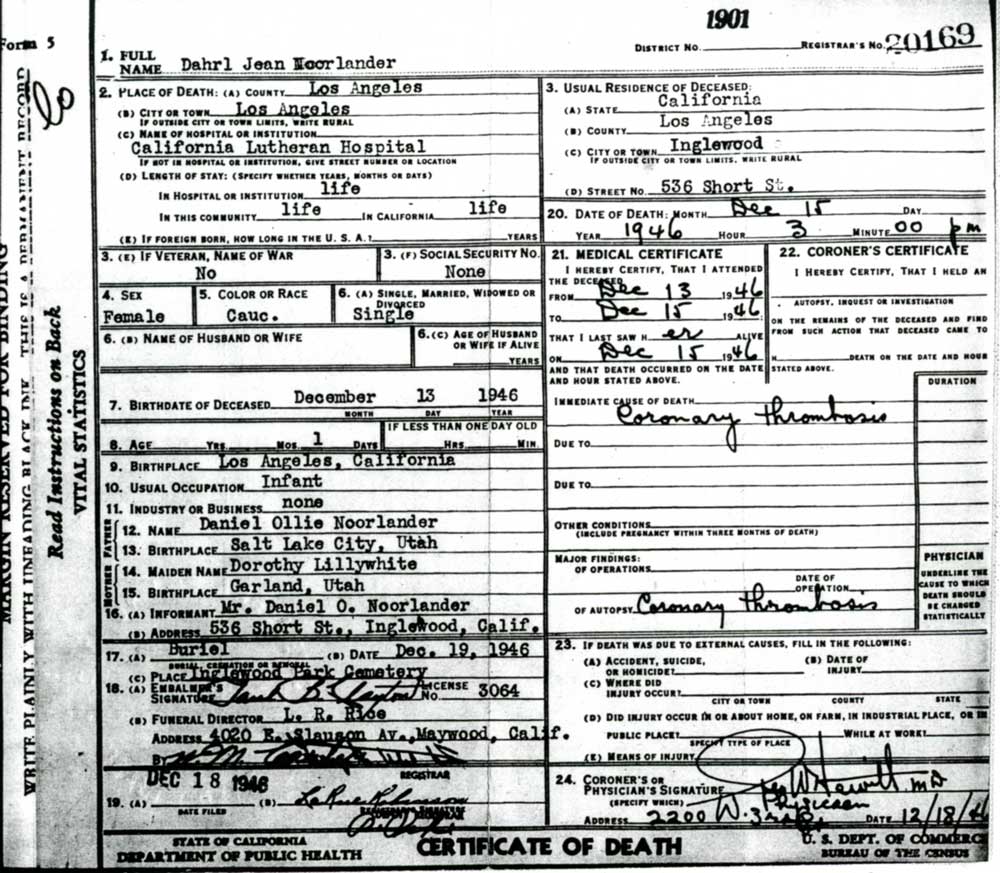 1901
Form 5
DISTRICT No. REGISTRAR'S No. 20169
1. FULL NAME Dahrl Jean Noorlander
2. PLACE OF DEATH: (A) COUNTY Los Angeles
(B) CITY OR TOWN Los Angeles
IF OUTSIDE CITY OR TOWN LIMITS, WRITE RURAL
(C) NAME OF HOSPITAL OR INSTITUTION
California Lutheran Hospital
IF NOT IN HOSPITAL OR INSTITUTION, GIVE STREET NUMBER OR LOCATION
(D) LENGTH OF STAY: (SPECIFY WHETHER YEARS, MONTHS OR DAYS)
IN HOSPITAL OR INSTITUTION life
IN THIS COMMUNITY life IN CALIFORNIA life
(E) IF FOREIGN BORN, HOW LONG IN THE U. S. A.? YEARS
3. USUAL RESIDENCE OF DECEASED:
(A) STATE California
(B) COUNTY Los Angeles
(C) CITY OR TOWN Inglewood
IF OUTSIDE CITY OR TOWN LIMITS, WRITE RURAL
(D) STREET No. 536 Short St.
20. DATE OF DEATH: MONTH Dec 15 DAY
YEAR 1946 HOUR 3 MINUTE 00 pm
3. (E) IF VETERAN, NAME OF WAR
No
3. (F) SOCIAL SECURITY No.
None
4. SEX
Female
5. COLOR OR RACE
Cauc.
6. (A) SINGLE, MARRIED, WIDOWED OR DIVORCED
Single
6. (B) NAME OF HUSBAND OR WIFE
6. (C) AGE OF HUSBAND OR WIFE IF ALIVE
YEARS
7. BIRTHDATE OF DECEASED December 13 1946
MONTH DAY YEAR
8. AGE YRS. MOS. 1 DAYS
IF LESS THAN ONE DAY OLD
HRS. MIN.
9. BIRTHPLACE Los Angeles, California
10. USUAL OCCUPATION Infant
11. INDUSTRY OR BUSINESS none
FATHER
12. NAME Daniel Ollie Noorlander
13. BIRTHPLACE Salt Lake City, Utah
MOTHER
14. MAIDEN NAME Dorothy Lillywhite
15. BIRTHPLACE Garland, Utah
16. (A) INFORMANT Mr. Daniel O. Noorlander
(B) ADDRESS 536 Short St., Inglewood, Calif.
17. (A) Buriel (B) DATE Dec. 19, 1946
BURIAL, CREMATION OR REMOVAL
(C) PLACE Inglewood Park Cemetery
18. (A) EMBALMER'S SIGNATURE LICENSE No. 3064
(B) FUNERAL DIRECTOR L. R. Rice
ADDRESS 4020 E. Slauson Av., Maywood, Calif.
BY
REGISTRAR
DEC 18 1946
19. (A) (B)
DATE FILED REGISTRAR'S SIGNATURE
21. MEDICAL CERTIFICATE
I HEREBY CERTIFY, THAT I ATTENDED
THE DECEASED
FROM Dec 13 1946
TO Dec 15 1946
THAT I LAST SAW H er ALIVE
ON Dec 15 1946
AND THAT DEATH OCCURRED ON THE DATE
AND HOUR STATED ABOVE.
22. CORONER'S CERTIFICATE
I HEREBY CERTIFY, THAT I HELD AN
AUTOPSY, INQUEST OR INVESTIGATION
ON THE REMAINS OF THE DECEASED AND FIND
FROM SUCH ACTION THAT DECEASED CAME TO
H DEATH ON THE DATE AND HOUR
STATED ABOVE.
IMMEDIATE CAUSE OF DEATH
Coronary thrombosis
DURATION
DUE TO
DUE TO
OTHER CONDITIONS
(INCLUDE PREGNANCY WITHIN THREE MONTHS OF DEATH)
MAJOR FINDINGS:
OF OPERATIONS
DATE OF OPERATION
OF AUTOPSY Coronary thrombosis
PHYSICIAN
UNDERLINE THE
CAUSE TO WHICH
DEATH SHOULD
BE CHARGED
STATISTICALLY
23. IF DEATH WAS DUE TO EXTERNAL CAUSES, FILL IN THE FOLLOWING:
(A) ACCIDENT, SUICIDE, OR HOMICIDE?
(B) DATE OF INJURY
(C) WHERE DID INJURY OCCUR?
CITY OR TOWN COUNTY STATE
(D) DID INJURY OCCUR IN OR ABOUT HOME, ON FARM, IN INDUSTRIAL PLACE, OR IN
PUBLIC PLACE? WHILE AT WORK?
SPECIFY TYPE OF PLACE
(E) MEANS OF INJURY
24. CORONER'S OR PHYSICIAN'S SIGNATURE W Hewitt MD
(SPECIFY WHICH) Physician
ADDRESS 2200 W. 3rd DATE 12/18/46
STATE OF CALIFORNIA
DEPARTMENT OF PUBLIC HEALTH
CERTIFICATE OF DEATH
U. S. DEPT. OF COMMERCE
BUREAU OF THE CENSUS
MARGIN RESERVED FOR BINDING
WRITE PLAINLY WITH UNFADING BLACK INK. THIS IS A PERMANENT RECORD
Read Instructions on Back
VITAL STATISTICS